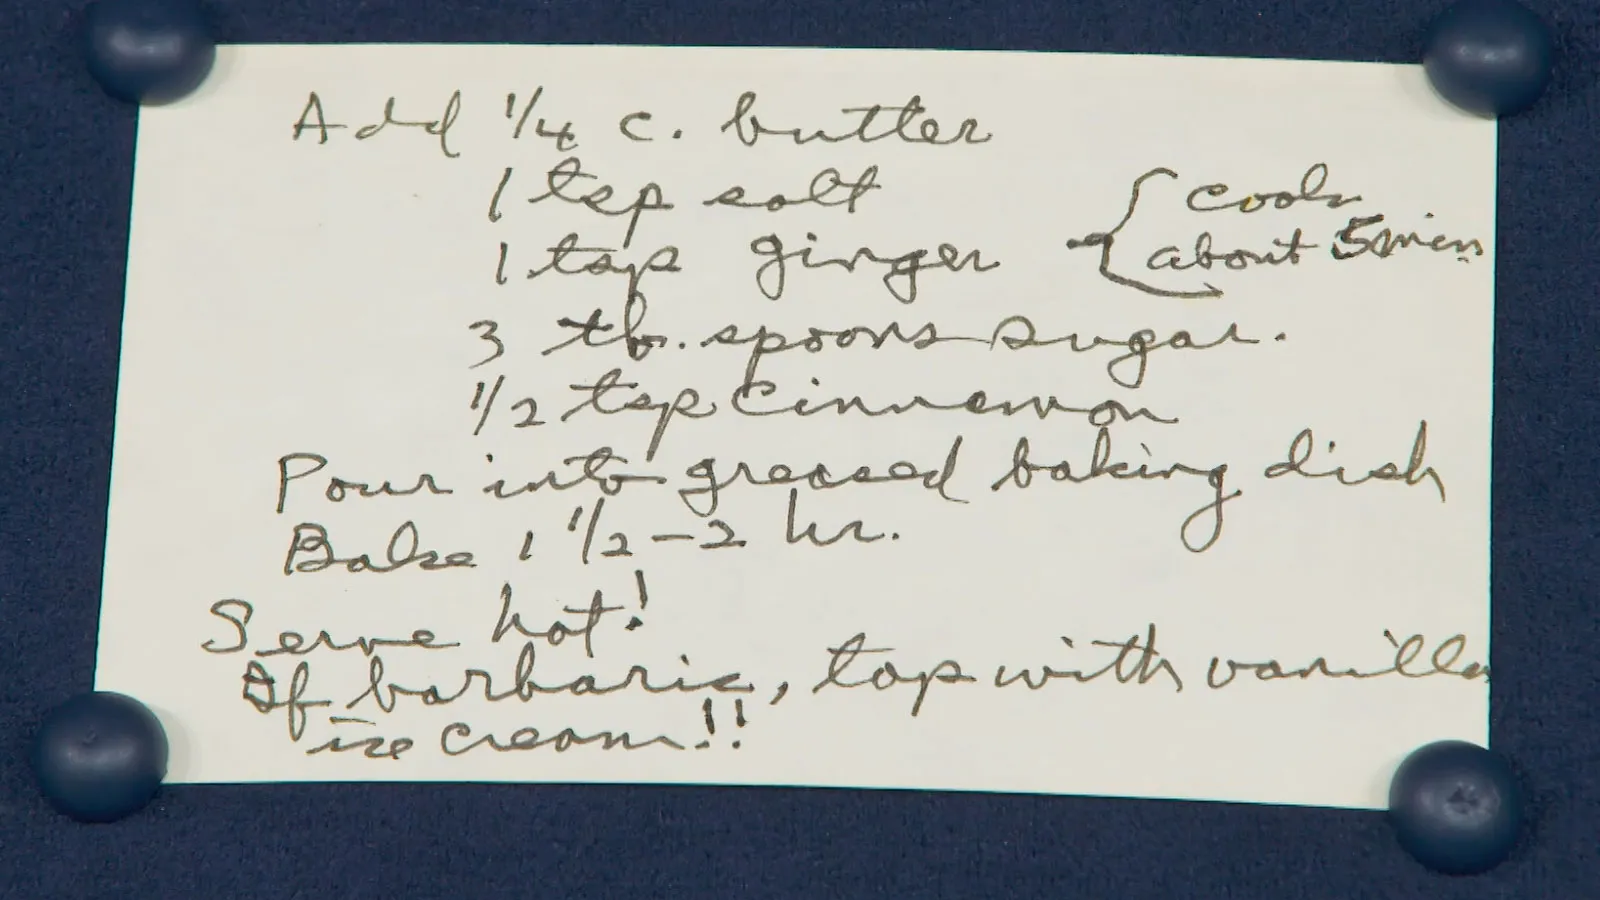 Add 1/4 c. butter
1 tsp salt
1 tsp ginger { cook
about 5 min
3 tb. spoons sugar.
1/2 tsp cinnamon
Pour into greased baking dish
Bake 1 1/2 - 2 hr.
Serve hot!
If barbaric, top with vanilla
ice cream!!